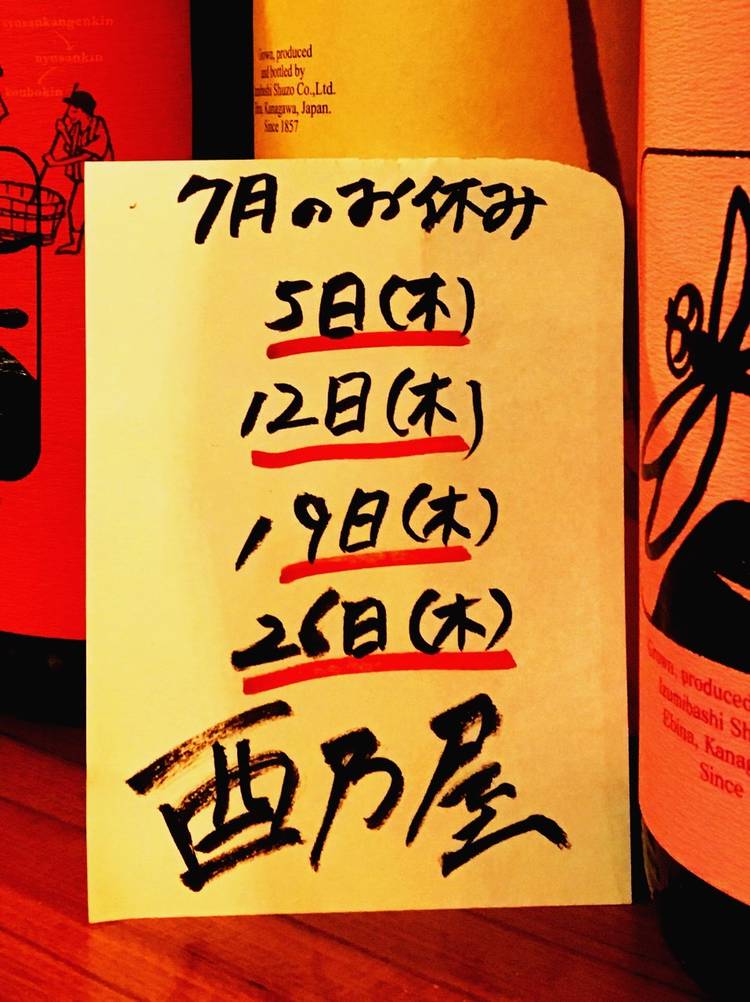 syusankangenkin
nyusankin
koubokin
Grown, produced
and bottled by
Izumibashi Shuzo Co.,Ltd.
Ebina, Kanagawa, Japan.
Since 1857
7月のお休み
5日(木)
12日(木)
19日(木)
26日(木)
酉乃屋
Grown, produced
Izumibashi Sh
Ebina, Kanag
Since